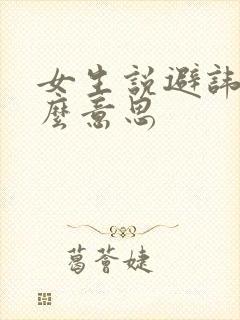 女生說避諱
麼意思
葛薈婕